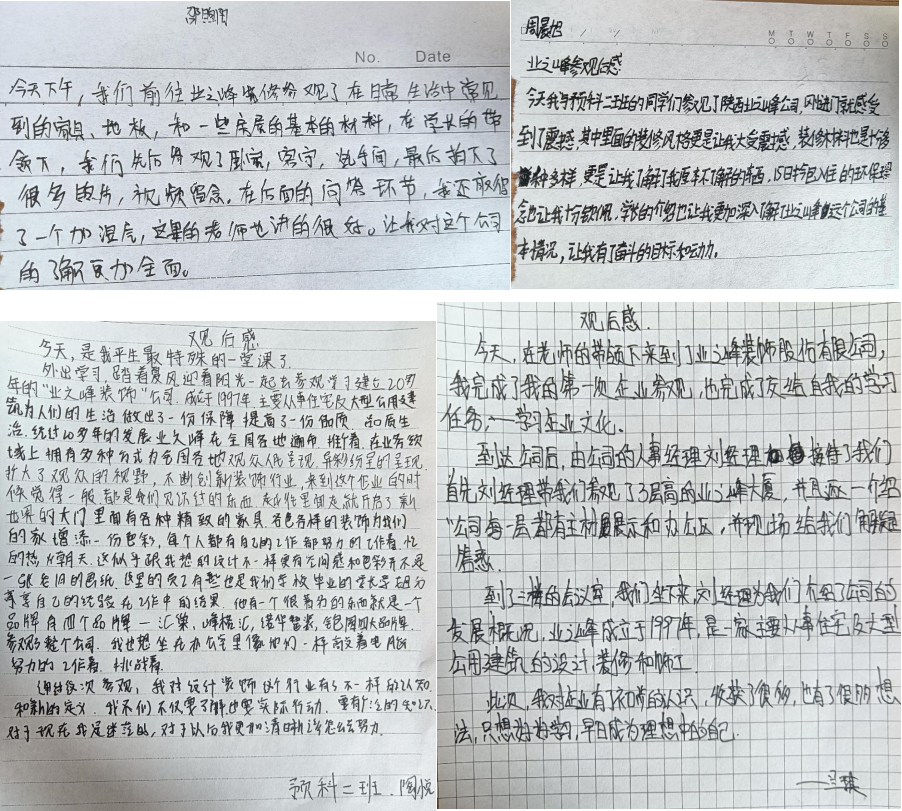 No. Date
今天下午，我们前往业之峰装修参观了在日常生活中常见
到的家具、地板，和一些房屋的基本的材料，在学长的带
领下，我们先后参观了卧室，客厅，洗手间，最后拍下了
很多照片，视频留念。在后面的问答环节，我还获得
了一个加湿器，这里的老师也讲的很好。让我对这个公司
的了解更加全面。
周晨旭
M T W T F S S
业之峰参观后感
今天我与预科二班的同学们参观了陕西业之峰公司，刚进门就感受
到了震撼，其中里面的装修风格更是让我大受震撼，装修木材也是十分
多种多样，更是让我了解了我原本不了解的东西，15日拎包入住的环保理
念也让我十分敬佩，学长的介绍也让我更加深入了解了业之峰这个公司的基
本情况，让我有了奋斗的目标和动力。
观后感
今天，是我平生最特殊的一堂课了
外出学习 踏着夏风迎着阳光一起去参观学习建立20多
年的"业之峰装饰"公司，成立于1997年，主要从事住宅及大型公用建
筑为人们的生活做出了一份保障 提高了一份品质
治，经过20多年的发展业之峰在全国各地遍布 在业务领
域上拥有多种公式力全国各地观众人民呈现，异彩纷呈的呈现
扩大了观众的视野，不断创新装饰行业，来到这个企业的时
候觉得一般都是我们见识过的东西，走进里面是就开启了新
世界的大门里面有各种精致的家具 各色各样的装饰为我们
的家增添一份色彩，每个人都有自己的工作都努力的工作着，忙
的热火朝天，这似乎跟我想的设计不一样更有空间感和色彩并不是
一张老旧的图纸，这里的员工有些也是我们学校毕业的学长学姐为
享享自己的经验在工作中的结果，他有一个很著名的东西就是一个
品牌有四个品牌一汇巢，峰格汇，诺华誉装，全包圆四大品牌
参观了整个公司，我也想坐在办公室里像他们一样敲着电脑
努力的工作着，挑战着
通过这次参观，我对设计装饰这个行业有了不一样的认知
和新的定义，我不们不仅要了解也要实际行动，要有广泛的知识
对于现在我是迷茫的，对于以后我更加清晰该怎么去努力
预科二班 陶悦
观后感
今天，在老师的带领下来到了业之峰装饰股份有限公司，
我完成了我的第一次企业参观，也完成了友给自我的学习
任务，一学习企业文化。
到达公司后，由公司的人事经理刘经理接待了我们
首先刘经理带我们参观了3层高的业之峰大厦，并且逐一介绍
公司每一层都有主材展示和办公区，并现场给我们解疑
惑。
到了三楼的会议室，我们坐下来，刘经理为我们介绍了公司的
发展概况，业之峰成立于1997年，是一家主要从事住宅及大型
公用建筑的设计、装修和施工
此次，我对企业有了初步的认识，收获了很多，也有了很多想
法，只想好好学习，早日成为理想中的自己